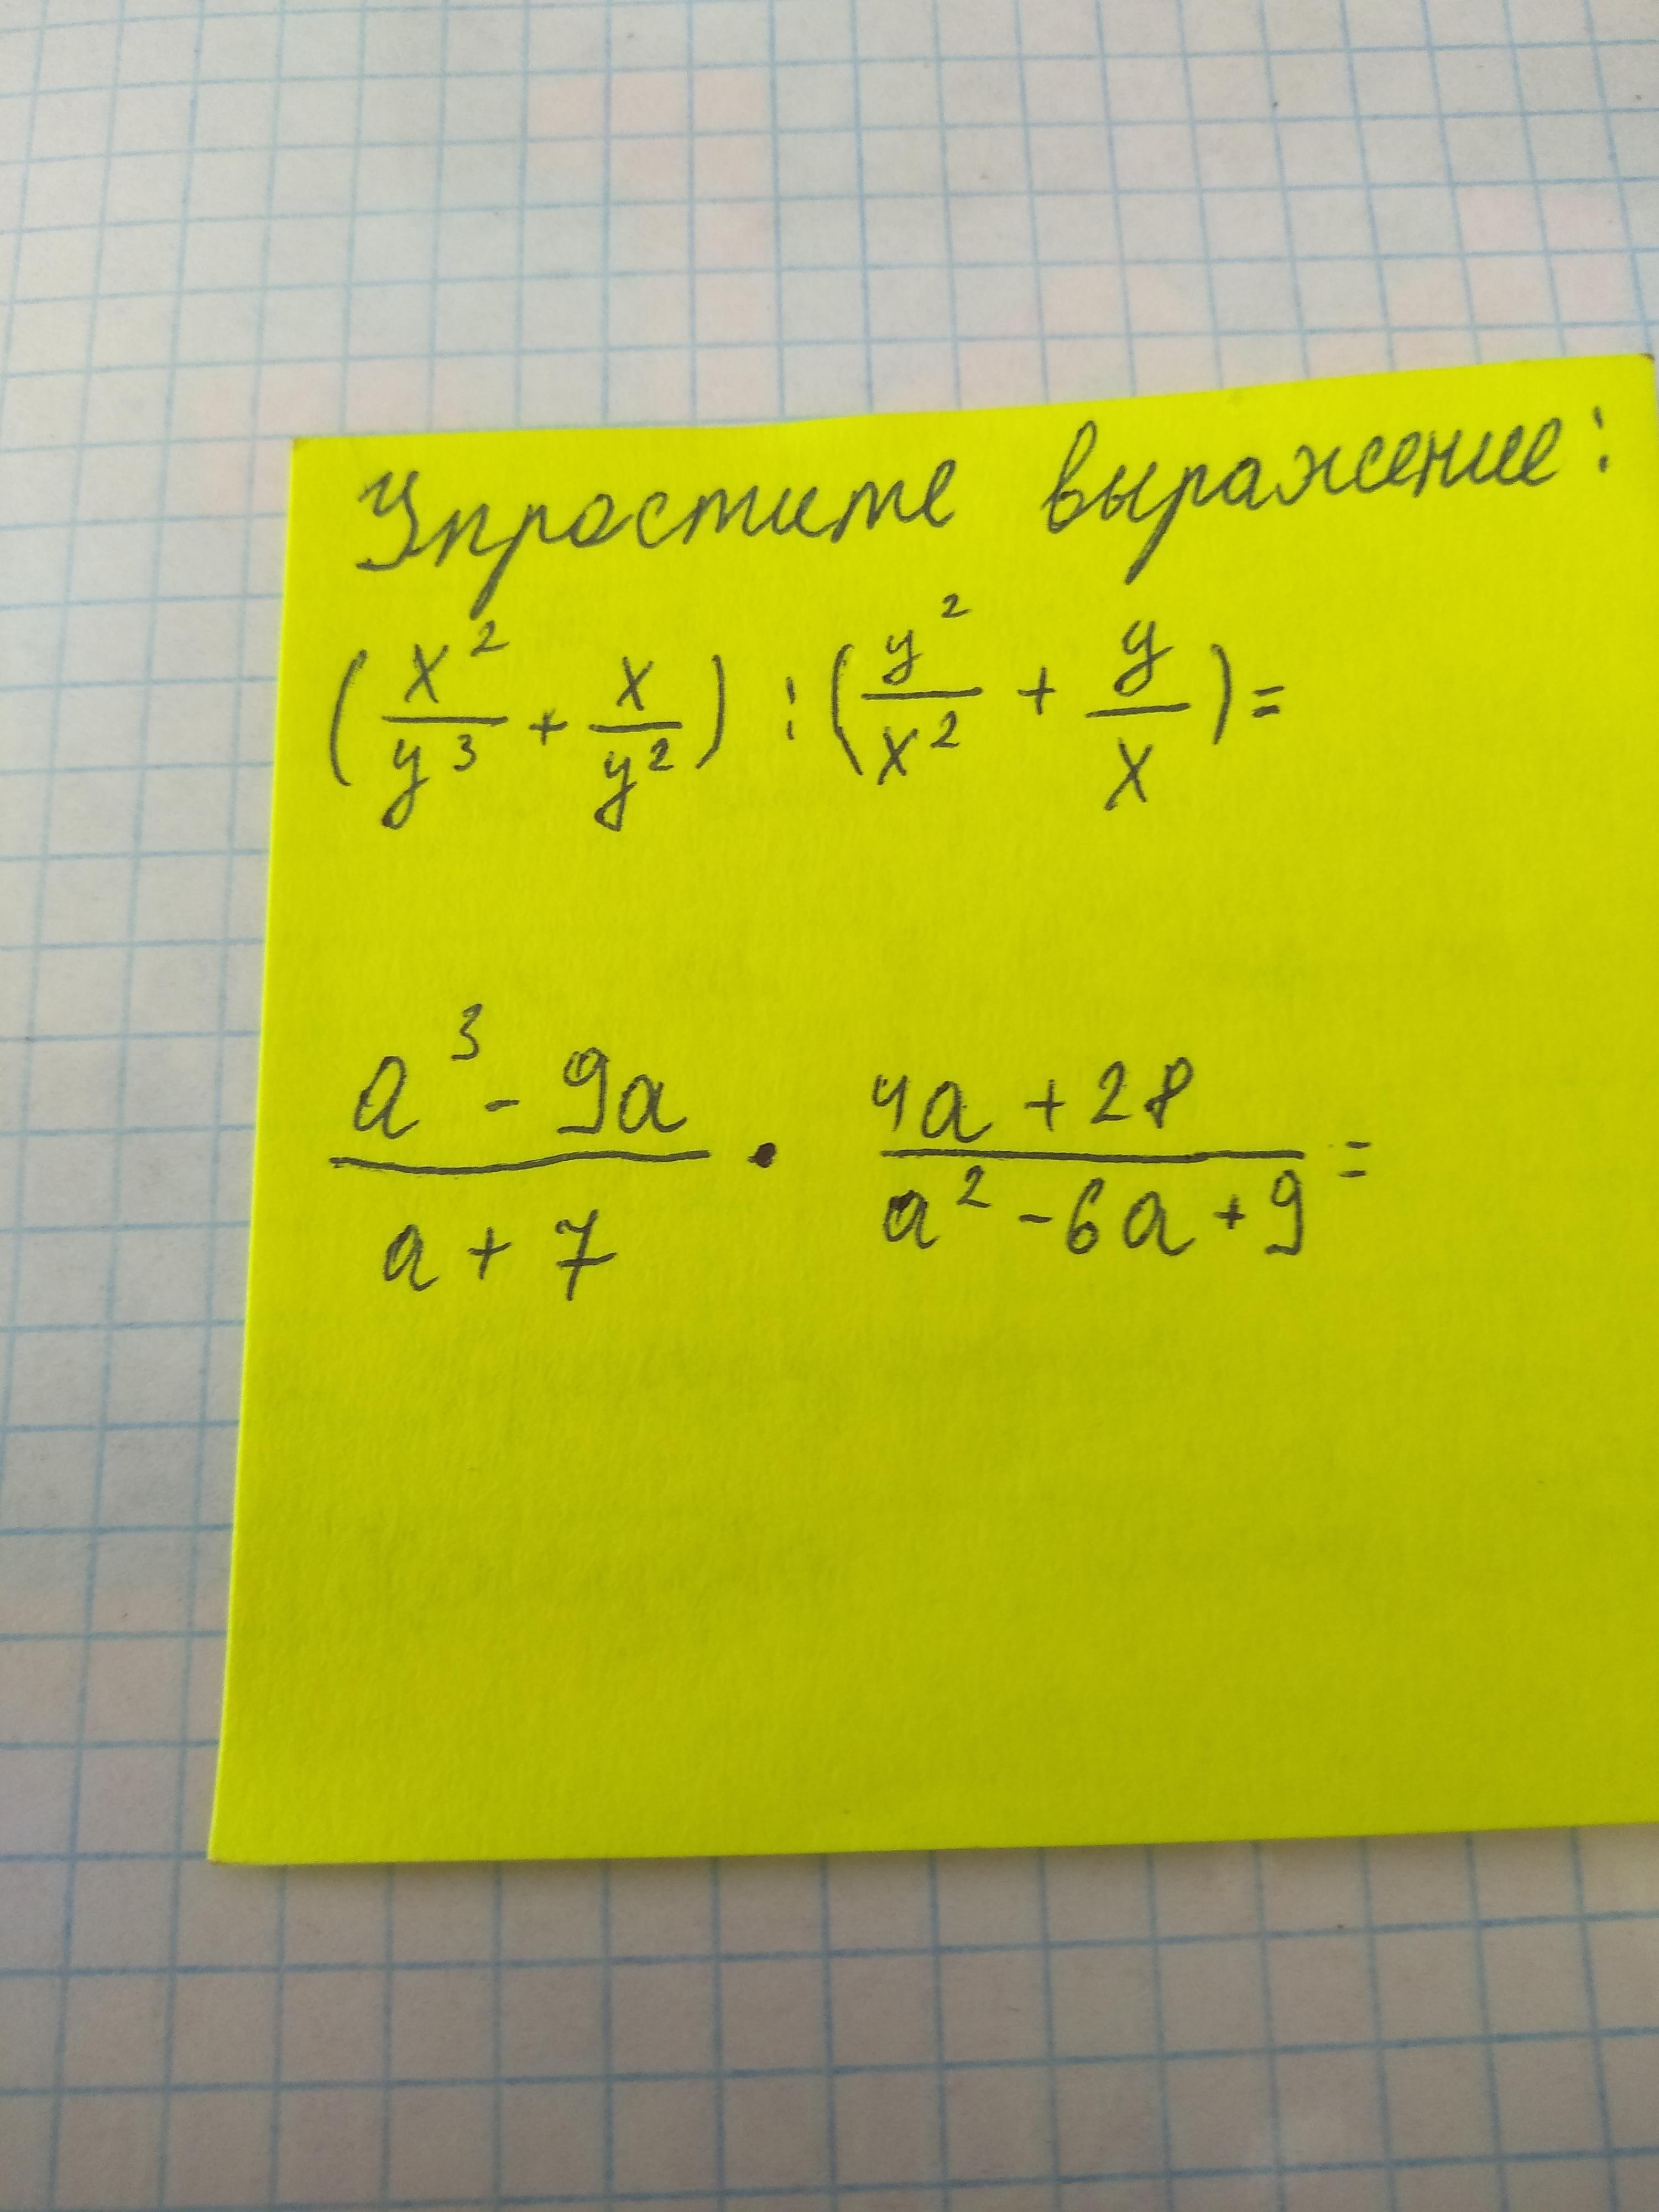 Упростите выражение:
(x²/y³ + x/y²) : (y²/x² + y/x) =
a³ - 9a / a + 7 · 4a + 28 / a² - 6a + 9 =